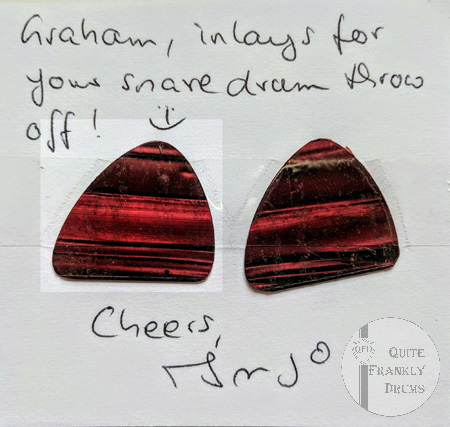 Graham, inlays for
your snare drum throw
off!
Cheers,
QFD
QUITE
FRANKLY
DRUMS